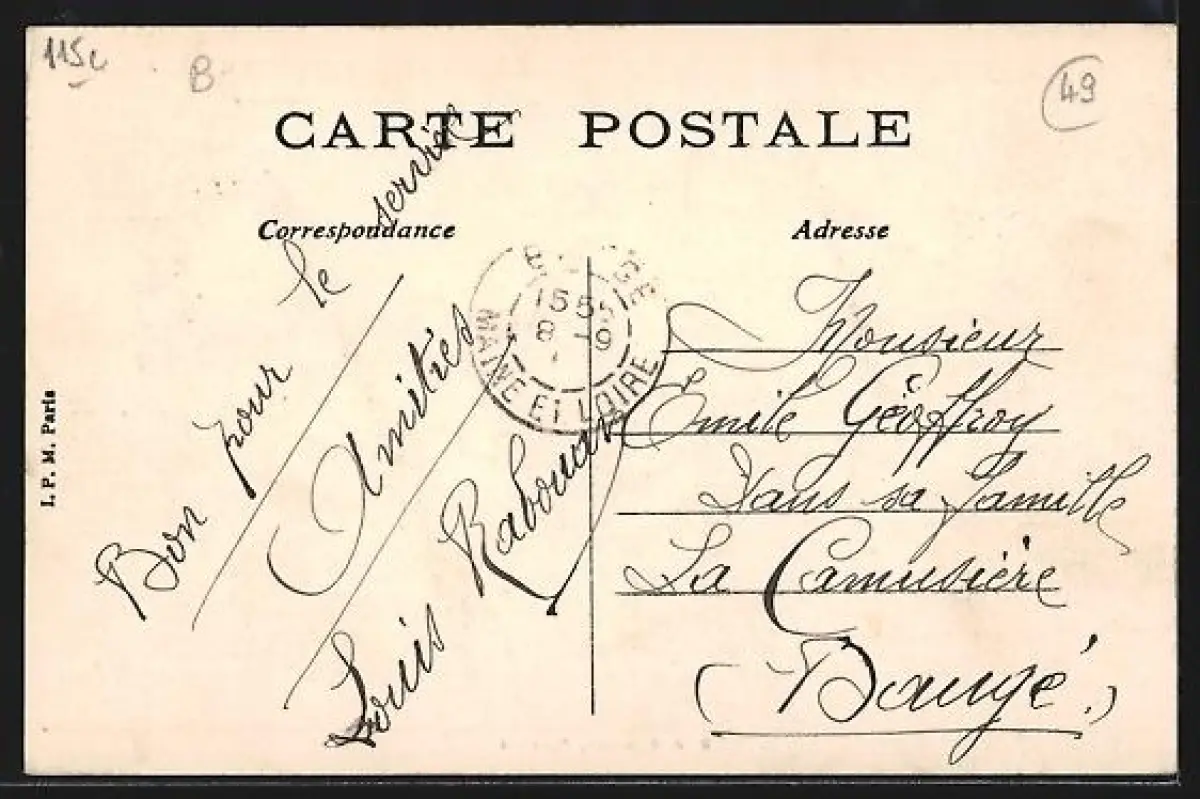 115c
B
49
CARTE POSTALE
Correspondance
Adresse
Bon pour le service
Amitiés
Louis Rabouan
MAINE ET LOIRE
Monsieur
Emile Géoffroy
Dans sa famille
La Camusière
(Baugé.)
I. P. M. Paris